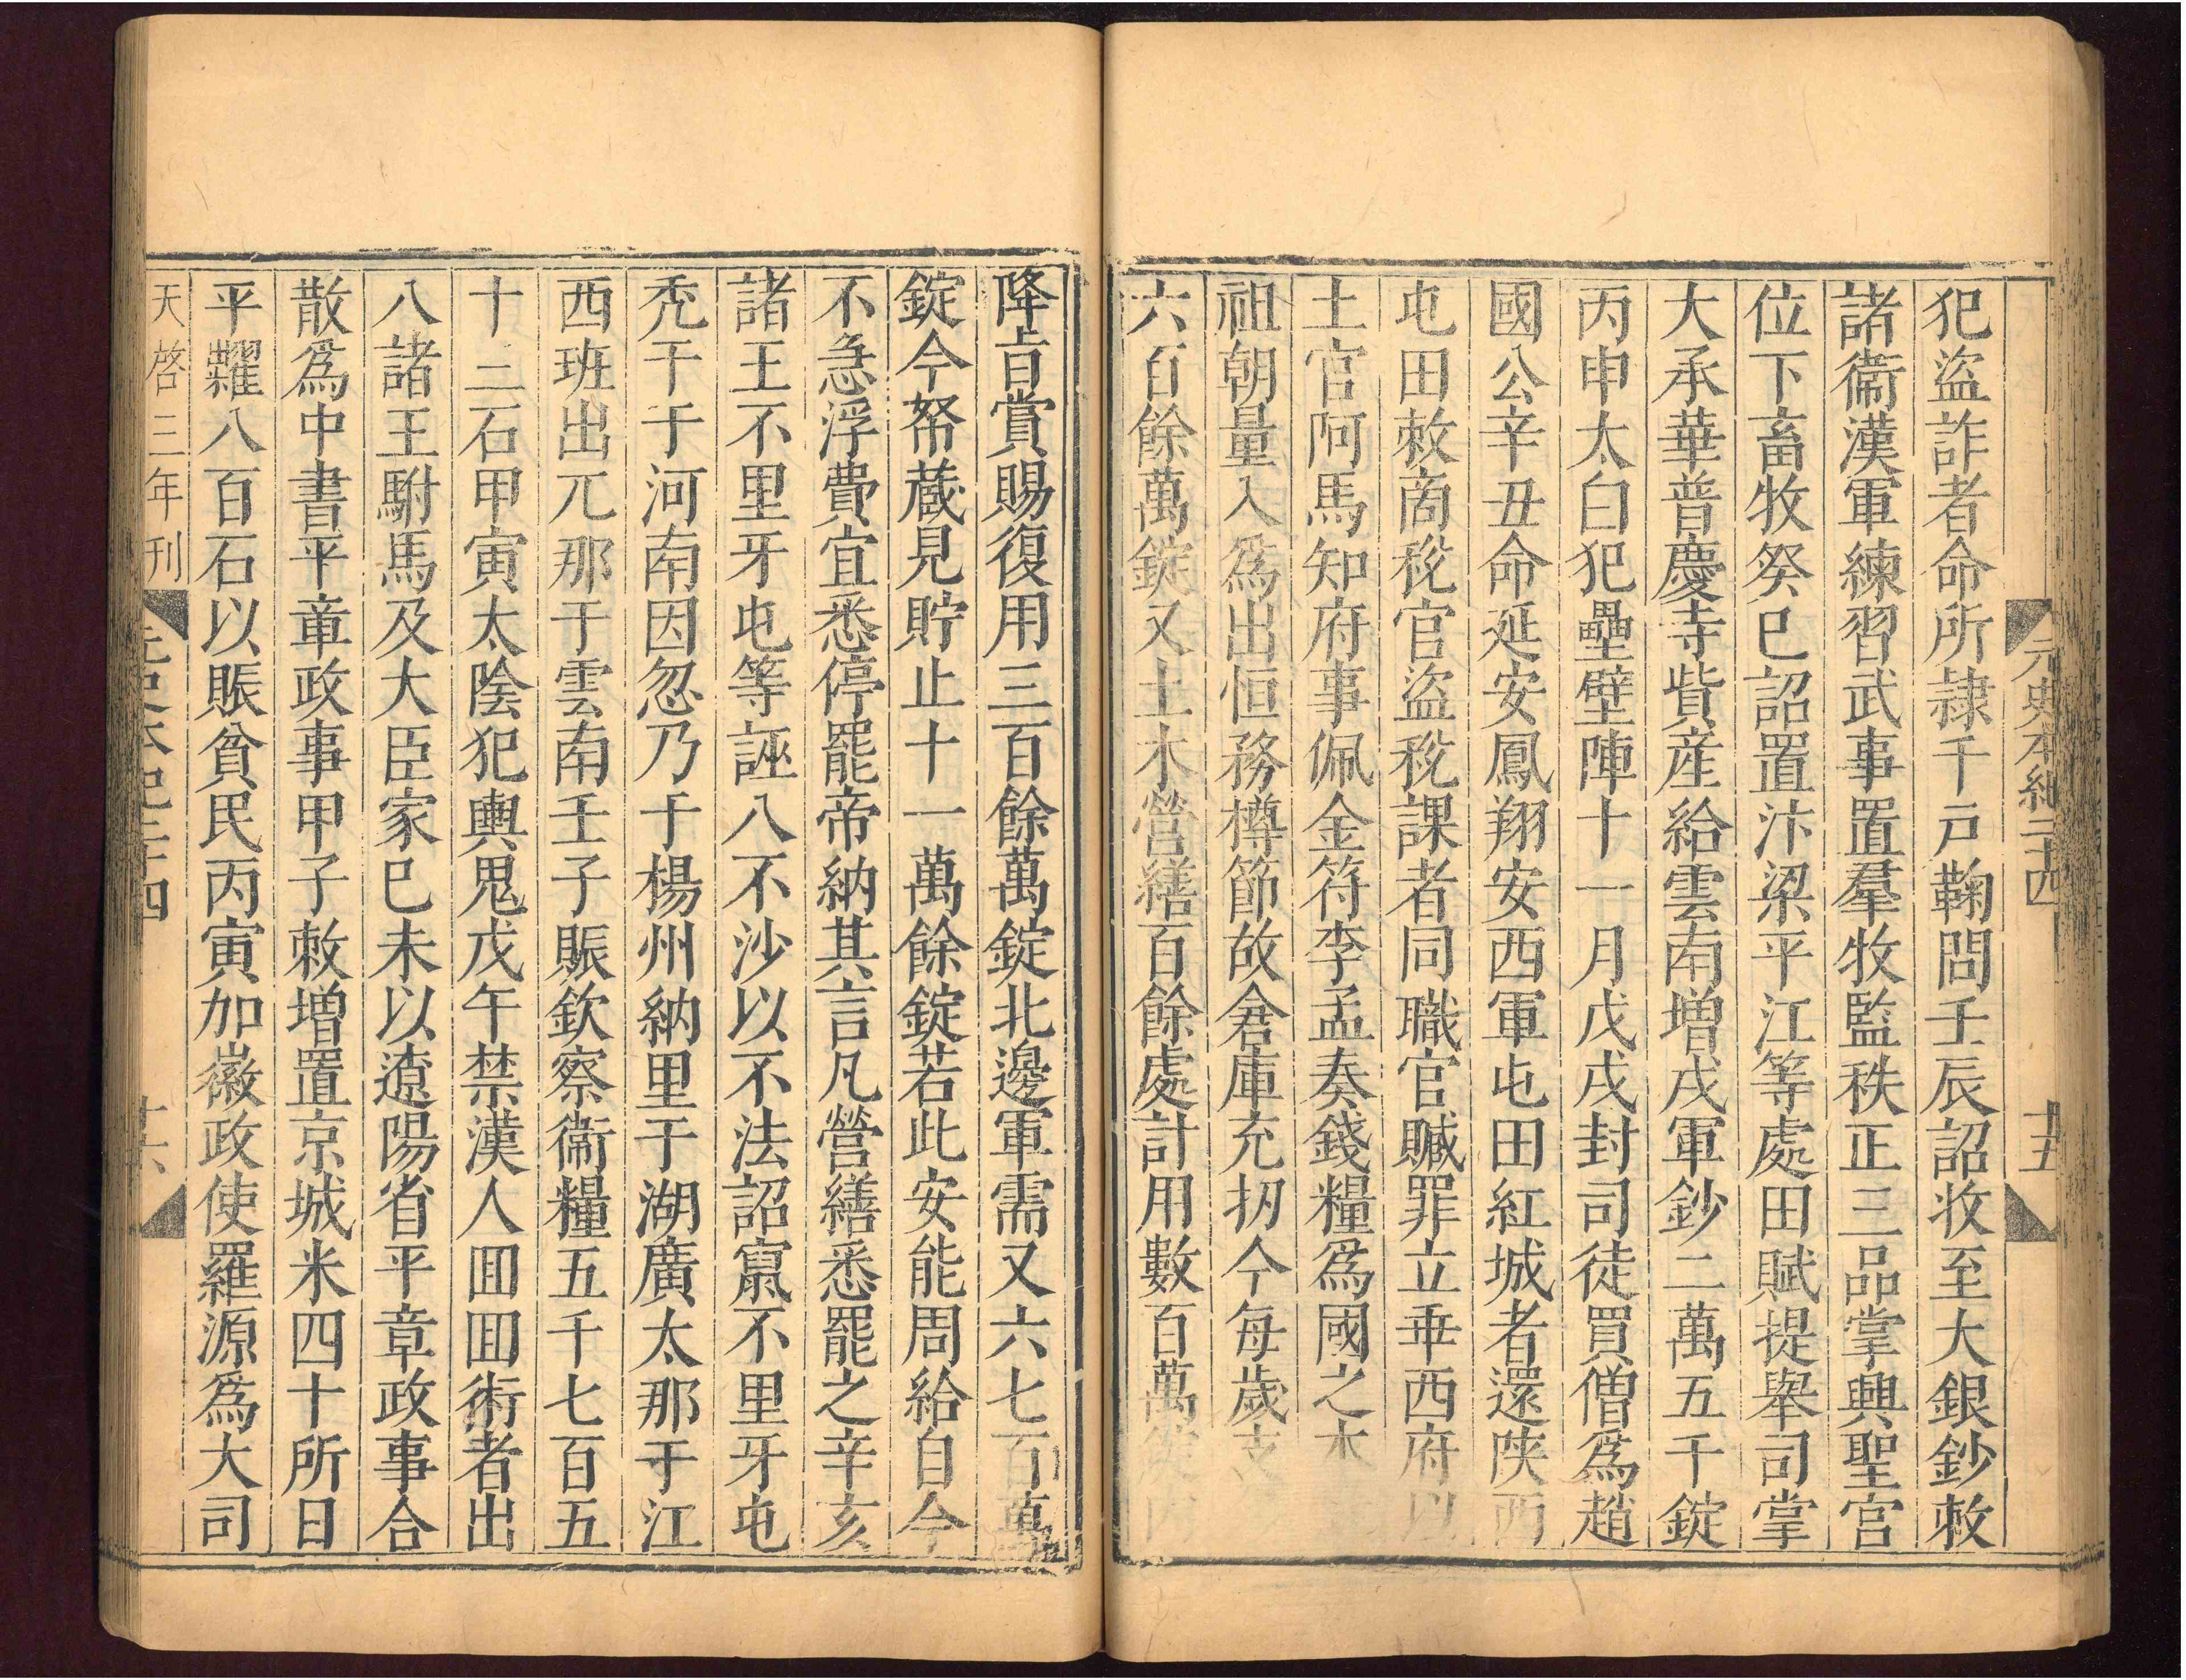 元史本紀二十四
十五
犯盜詐者命所隷千戸鞠問壬辰詔收至大銀鈔敕
諸衞漢軍練習武事置羣牧監秩正三品掌興聖宮
位下畜牧癸巳詔置汴梁平江等處田賦提舉司掌
大承華普慶寺貲産給雲南增戍軍鈔二萬五千錠
丙申太白犯壘壁陣十一月戊戌封司徒買僧爲趙
國公辛丑命延安鳳翔安西軍屯田紅城者還陝西
屯田敕商稅官盜稅課者同職官贓罪立乖西府以
土官阿馬知府事佩金符李孟奏錢糧爲國之本
祖朝量入爲出恒務樽節故倉庫充牣今每歲支
六百餘萬錠又土木營繕百餘處計用數百萬
降旨賞賜復用三百餘萬錠北邊軍需又六七百萬
錠今帑藏見貯止十一萬餘錠若此安能周給自今
不急浮費宜悉停罷帝納其言凡營繕悉罷之辛亥
諸王不里牙屯等誣八不沙以不法詔竄不里牙屯
禿干于河南因忽乃于楊州納里于湖廣太那于江
西班出兀那于雲南壬子賑欽察衞糧五千七百五
十二石甲寅太陰犯輿鬼戊午禁漢人回回術者出
八諸王駙馬及大臣家巳未以遼陽省平章政事合
散爲中書平章政事甲子敕增置京城米四十所日
平糶八百石以賑貧民丙寅加徽政使羅源爲大司
天啓三年刊
元史本紀二十四
十六